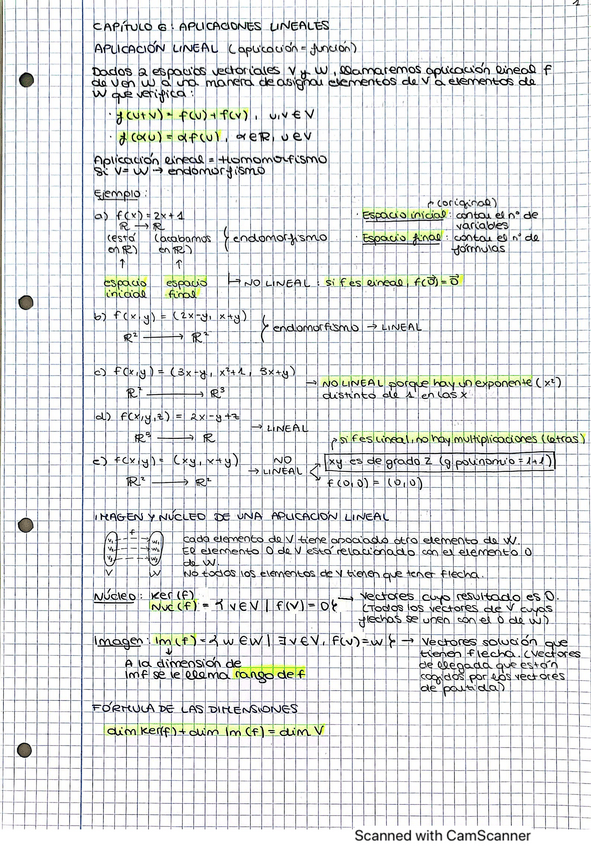 1
CAPÍTULO 6: APLICACIONES LINEALES
APLICACIÓN LINEAL (aplicación = función)
Dados 2 espacios vectoriales V y W, llamaremos aplicación lineal f
de V en W a una manera de asignar elementos de V a elementos de
W que verifica:
· f(u+v) = f(u) + f(v), u,v ∈ V
· f(αu) = αf(u), α ∈ ℝ, u ∈ V
Aplicación lineal = Homomorfismo
Si V = W → endomorfismo
Ejemplo:
a) f(x) = 2x+1
ℝ → ℝ
(está en ℝ) (acabamos en ℝ) } endomorfismo
↑ ↑
espacio inicial espacio final
↳ NO LINEAL: si f es lineal, f(0⃗) = 0⃗
(original)
· Espacio inicial: contar el nº de
variables
· Espacio final: contar el nº de
fórmulas
b) f(x,y) = (2x-y, x+y)
ℝ² → ℝ² } endomorfismo → LINEAL
c) f(x,y) = (3x-y, x²+1, 5x+y)
ℝ² → ℝ³
→ NO LINEAL porque hay un exponente (x²)
distinto de 1 en las x
d) f(x,y,z) = 2x-y+z
ℝ³ → ℝ → LINEAL
e) f(x,y) = (xy, x+y)
ℝ² → ℝ² → NO LINEAL
si f es lineal, no hay multiplicaciones (letras)
xy es de grado 2 (g polinomio = 1+1)
f(0,0) = (0,0)
IMAGEN Y NÚCLEO DE UNA APLICACIÓN LINEAL
f
V W
cada elemento de V tiene asociado otro elemento de W.
El elemento 0 de V está relacionado con el elemento 0
de W.
No todos los elementos de V tienen que tener flecha.
Núcleo: Ker(f)
Nuc(f) = { v ∈ V | f(v) = 0 } → Vectores cuyo resultado es 0.
(Todos los vectores de V cuyas
flechas se unen con el 0 de W)
Imagen: Im(f) = { w ∈ W | ∃ v ∈ V, f(v) = w } → Vectores solución que
tienen flecha. (Vectores
de llegada que están
cogidos por los vectores
de partida)
↓
A la dimensión de
Imf se le llama rango de f
FÓRMULA DE LAS DIMENSIONES
dim Ker(f) + dim Im(f) = dim V
Scanned with CamScanner